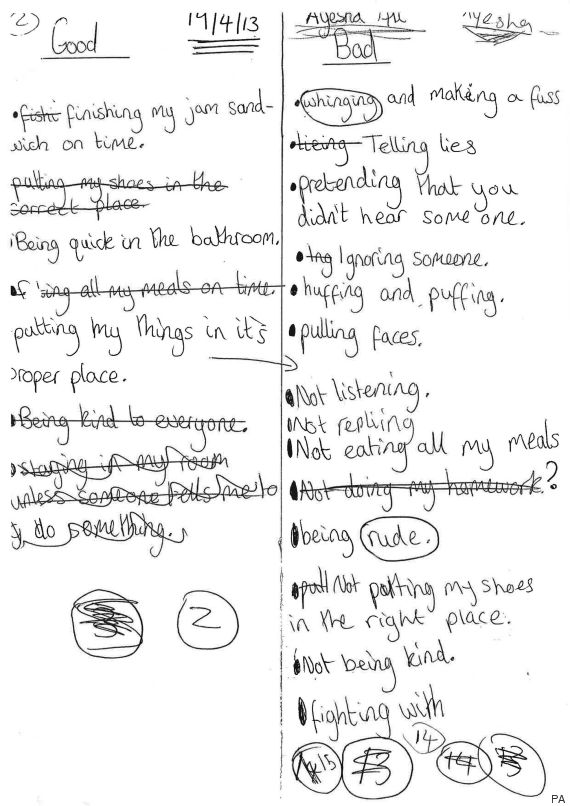 2)
Good
14/4/13
• fishi finishing my jam sand-
wich on time.
putting my shoes in the
correct place.
Being quick in the bathroom.
all my meals on time.
putting my things in it's
proper place.
• Being kind to everyone.
staying in my room
unless someone tells me to
do something.
2
Ayesha Ali
Ayesha
Bad
• whinging and making a fuss
• lieing Telling lies
• pretending that you
didn't hear someone.
• Ing Ignoring someone.
• huffing and puffing.
• pulling faces.
Not listening.
Not repliing
Not eating all my meals
Not doing my homework.?
being rude.
• pull Not putting my shoes
in the right place.
Not being kind.
fighting with
14
15
13
14
PA